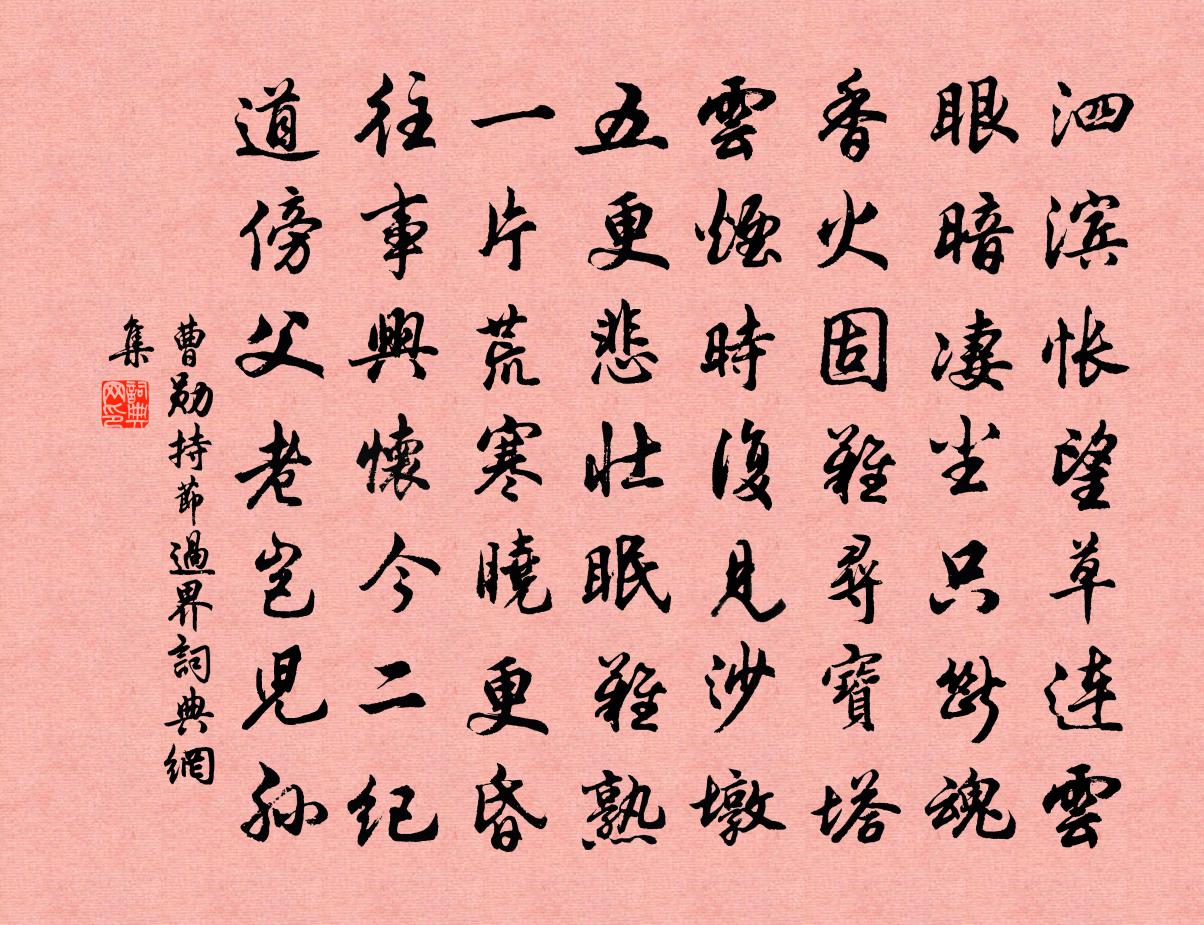 泗滨怅望草连雲
眼暗凄坐只斷魂
香火固難尋寶塔
雲煙時復見沙墩
五更悲壮眠難熟
一片荒寒曉更昏
往事興懷今二紀
道傍父老岂児孙
曹勛持節過界詞典網
集
詞典网印